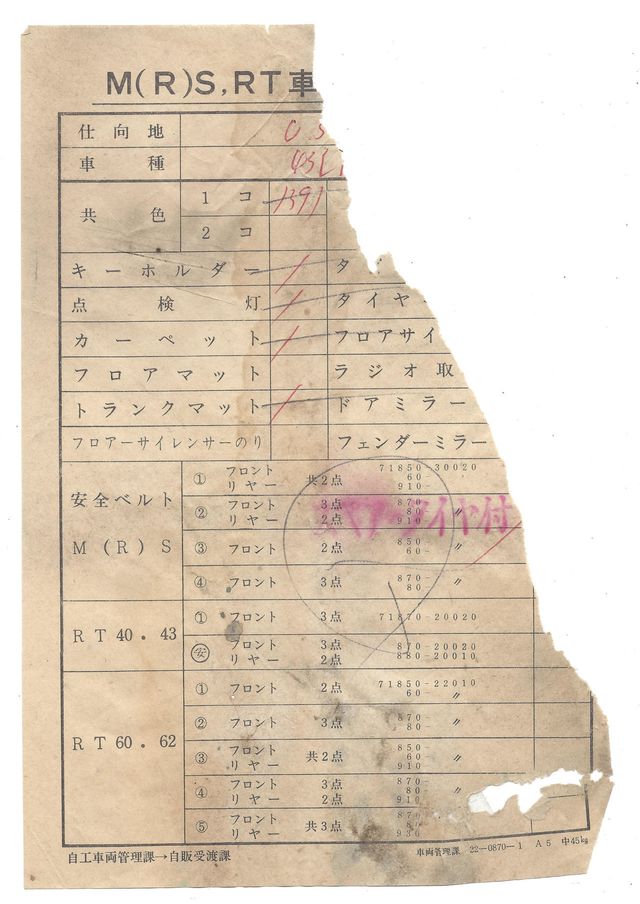 M(R)S,RT車
仕向地 US
車種
共色 1コ 1391
2コ
キーホルダー タ
点検灯 タイヤ
カーペット フロアサイ
フロアマット ラジオ取
トランクマット ドアミラー
フロアーサイレンサーのり フェンダーミラー
安全ベルト
M(R)S
① フロント リヤー 共2点 71850-30020
60-
910-
② フロント 3点 870-
80- 〃
リヤー 2点 910
タイヤ付
③ フロント 2点 850-
60- 〃
④ フロント 3点 870-
80- 〃
RT40・43
① フロント 3点 71870-20020
安 フロント 3点 870-20020
リヤー 2点 880-20010
RT60・62
① フロント 2点 71850-22010
60- 〃
② フロント 3点 870-
80- 〃
③ フロント リヤー 共2点 850-
60 〃
910-
④ フロント 3点 870-
80 〃
リヤー 2点 910
⑤ フロント リヤー 共3点 870
8
930
自工車両管理課→自販受渡課
車両管理課 22-0870-1 A5 中45kg